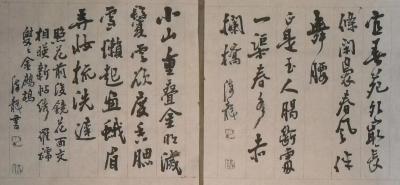 宜春苑外最長
條閑裊春風伴
舞腰
正是玉人腸斷處
一渠春水赤
欄橋
小山重疊金明滅
鬢雲欲度香腮
雪懶起畫蛾眉
弄妝梳洗遲
照花前後鏡花面交
相映新帖繡羅襦
雙雙金鷓鴣 書